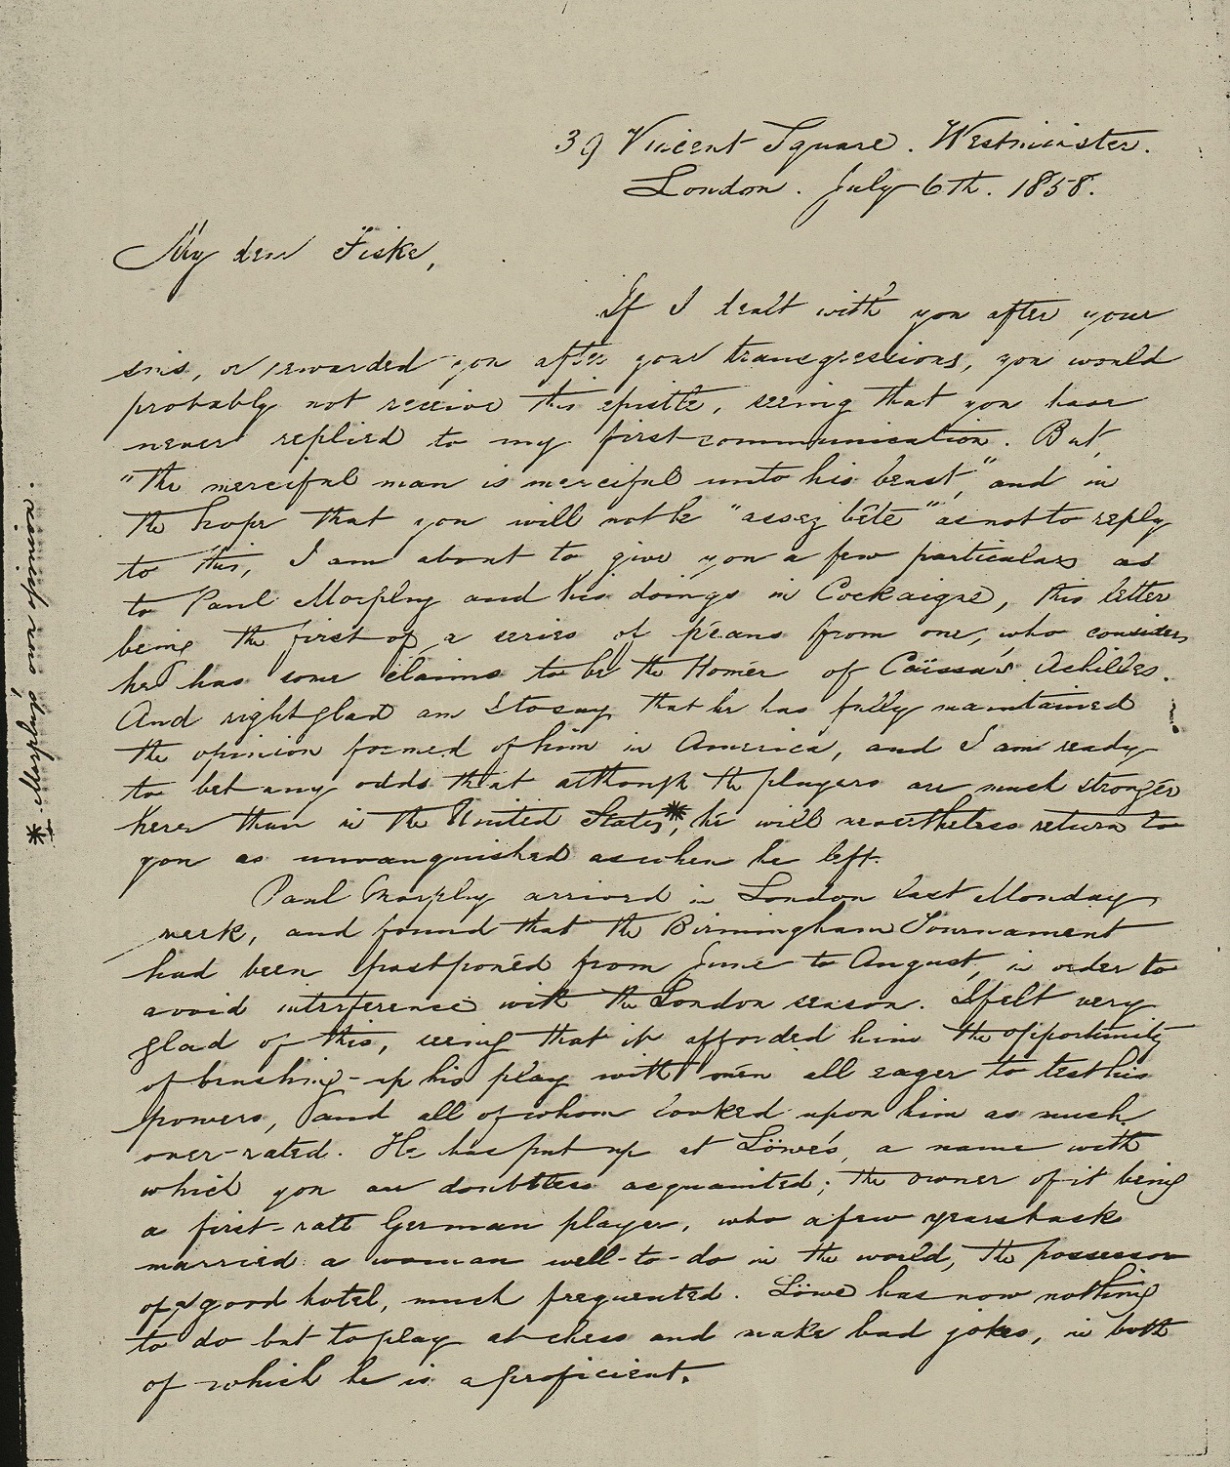 39 Vincent Square. Westminster.
London. July 6th. 1858.
My dear Fiske,
If I dealt with you after your
sins, or rewarded you after your transgressions, you would
probably not receive this epistle, seeing that you have
never replied to my first communication. But,
"the merciful man is merciful unto his beast," and in
the hope that you will not be "assez bête" as not to reply
to this, I am about to give you a few particulars as
to Paul Morphy and his doings in Cockaigne, this letter
being the first of a series of pæans from one, who considers
he has some claims to be the Homer of Caïssa's Achilles.
And right glad am I to say that he has fully maintained
the opinion formed of him in America, and I am ready
to bet any odds that although the players are much stronger
here than in the United States*, he will nevertheless return to
you as unvanquished as when he left.
Paul Morphy arrived in London last Monday
week, and found that the Birmingham Tournament
had been postponed from June to August, in order to
avoid interference with the London season. I felt very
glad of this, seeing that it afforded him the opportunity
of brushing-up his play with men all eager to test his
powers, and all of whom looked upon him as much
over-rated. He has put up at Löwe's, a name with
which you are doubtless acquainted; the owner of it being
a first-rate German player, who a few years back
married a woman well-to-do in the world, the possessor
of a good hotel, much frequented. Löwe has now nothing
to do but to play at chess and make bad jokes, in both
of which he is a proficient.
* Morphy's own opinion.